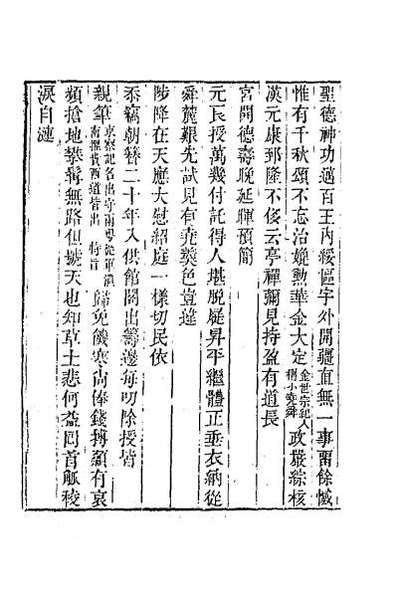 聖德神功邁百王內綏區宇外開疆直無一事畱餘憾
惟有千秋頌不忘治媲勲華金大定金世宗紀人稱小堯舜政嚴綜核
漢元康郅隆不侈云亭禪彌見持盈有道長
宮開德壽晚延暉預簡
元良授萬幾付託得人堪脫屣昇平繼體正垂衣納從
舜麓艱先試見有堯羹色豈違
陟降在天應大慰紹庭一樣切民依
忝竊朝簪二十年入供館閣出籌邊每叨除授皆
親筆京察記名出守兩粵從軍滇南擢貴西道皆出特旨歸免饑寒尙俸錢搏顙有哀
頻搶地攀髯無路但號天也知草土悲何益囘首觚稜
淚自漣